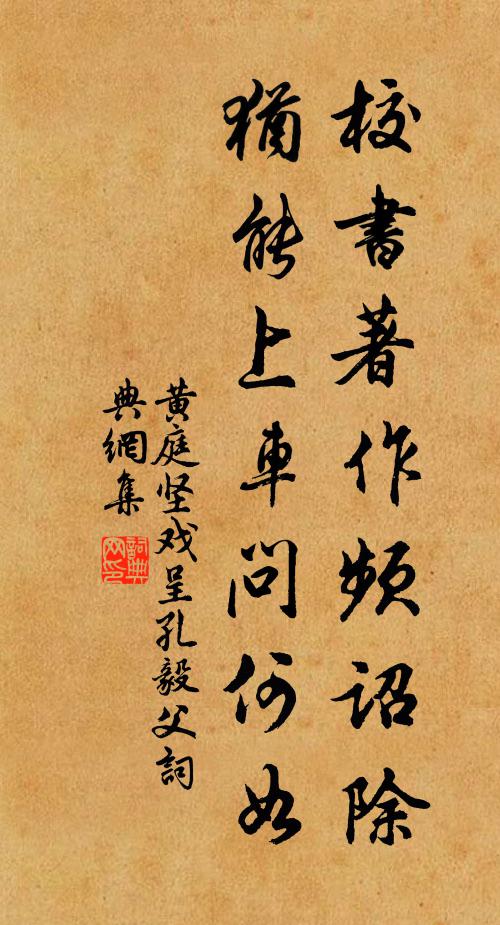 校書著作頻詔除
猶能上車問何如
黄庭坚戏呈孔毅父詞
典網集
詞典网印